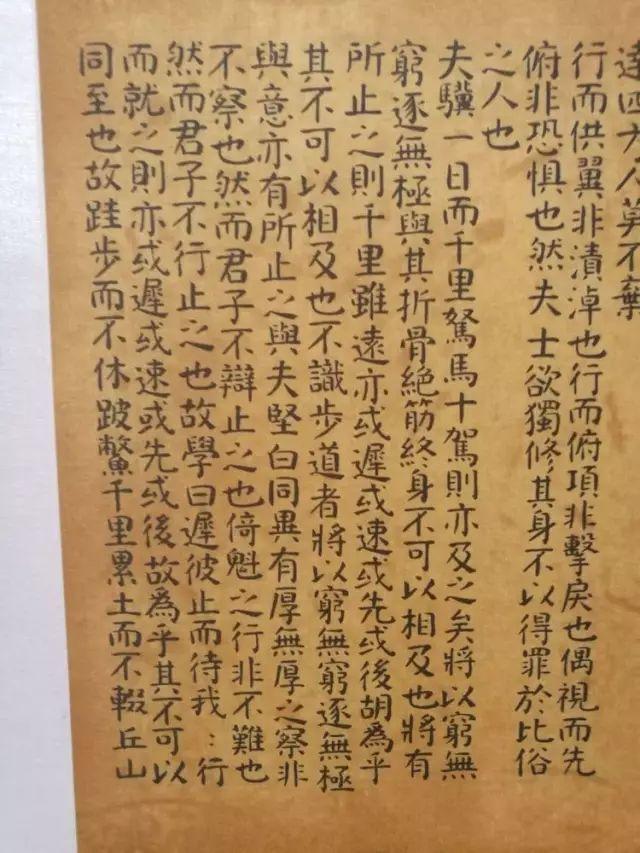 達四方人莫不棄
行而供翼非漬淖也行而俯項非擊戾也偶視而先
俯非恐懼也然夫士欲獨修其身不以得罪於比俗
之人也
夫驥一日而千里駑馬十駕則亦及之矣將以窮無
窮逐無極與其折骨絕筋終身不可以相及也將有
所止之則千里雖遠亦或遲或速或先或後胡為乎
其不可以相及也不識步道者將以窮無窮逐無極
與意亦有所止之與夫堅白同異有厚無厚之察非
不察也然而君子不辯止之也倚魁之行非不難也
然而君子不行止之也故學曰遲彼止而待我：行
而就之則亦或遲或速或先或後故為乎其不可以
同至也故跬步而不休跛鱉千里累土而不輟丘山